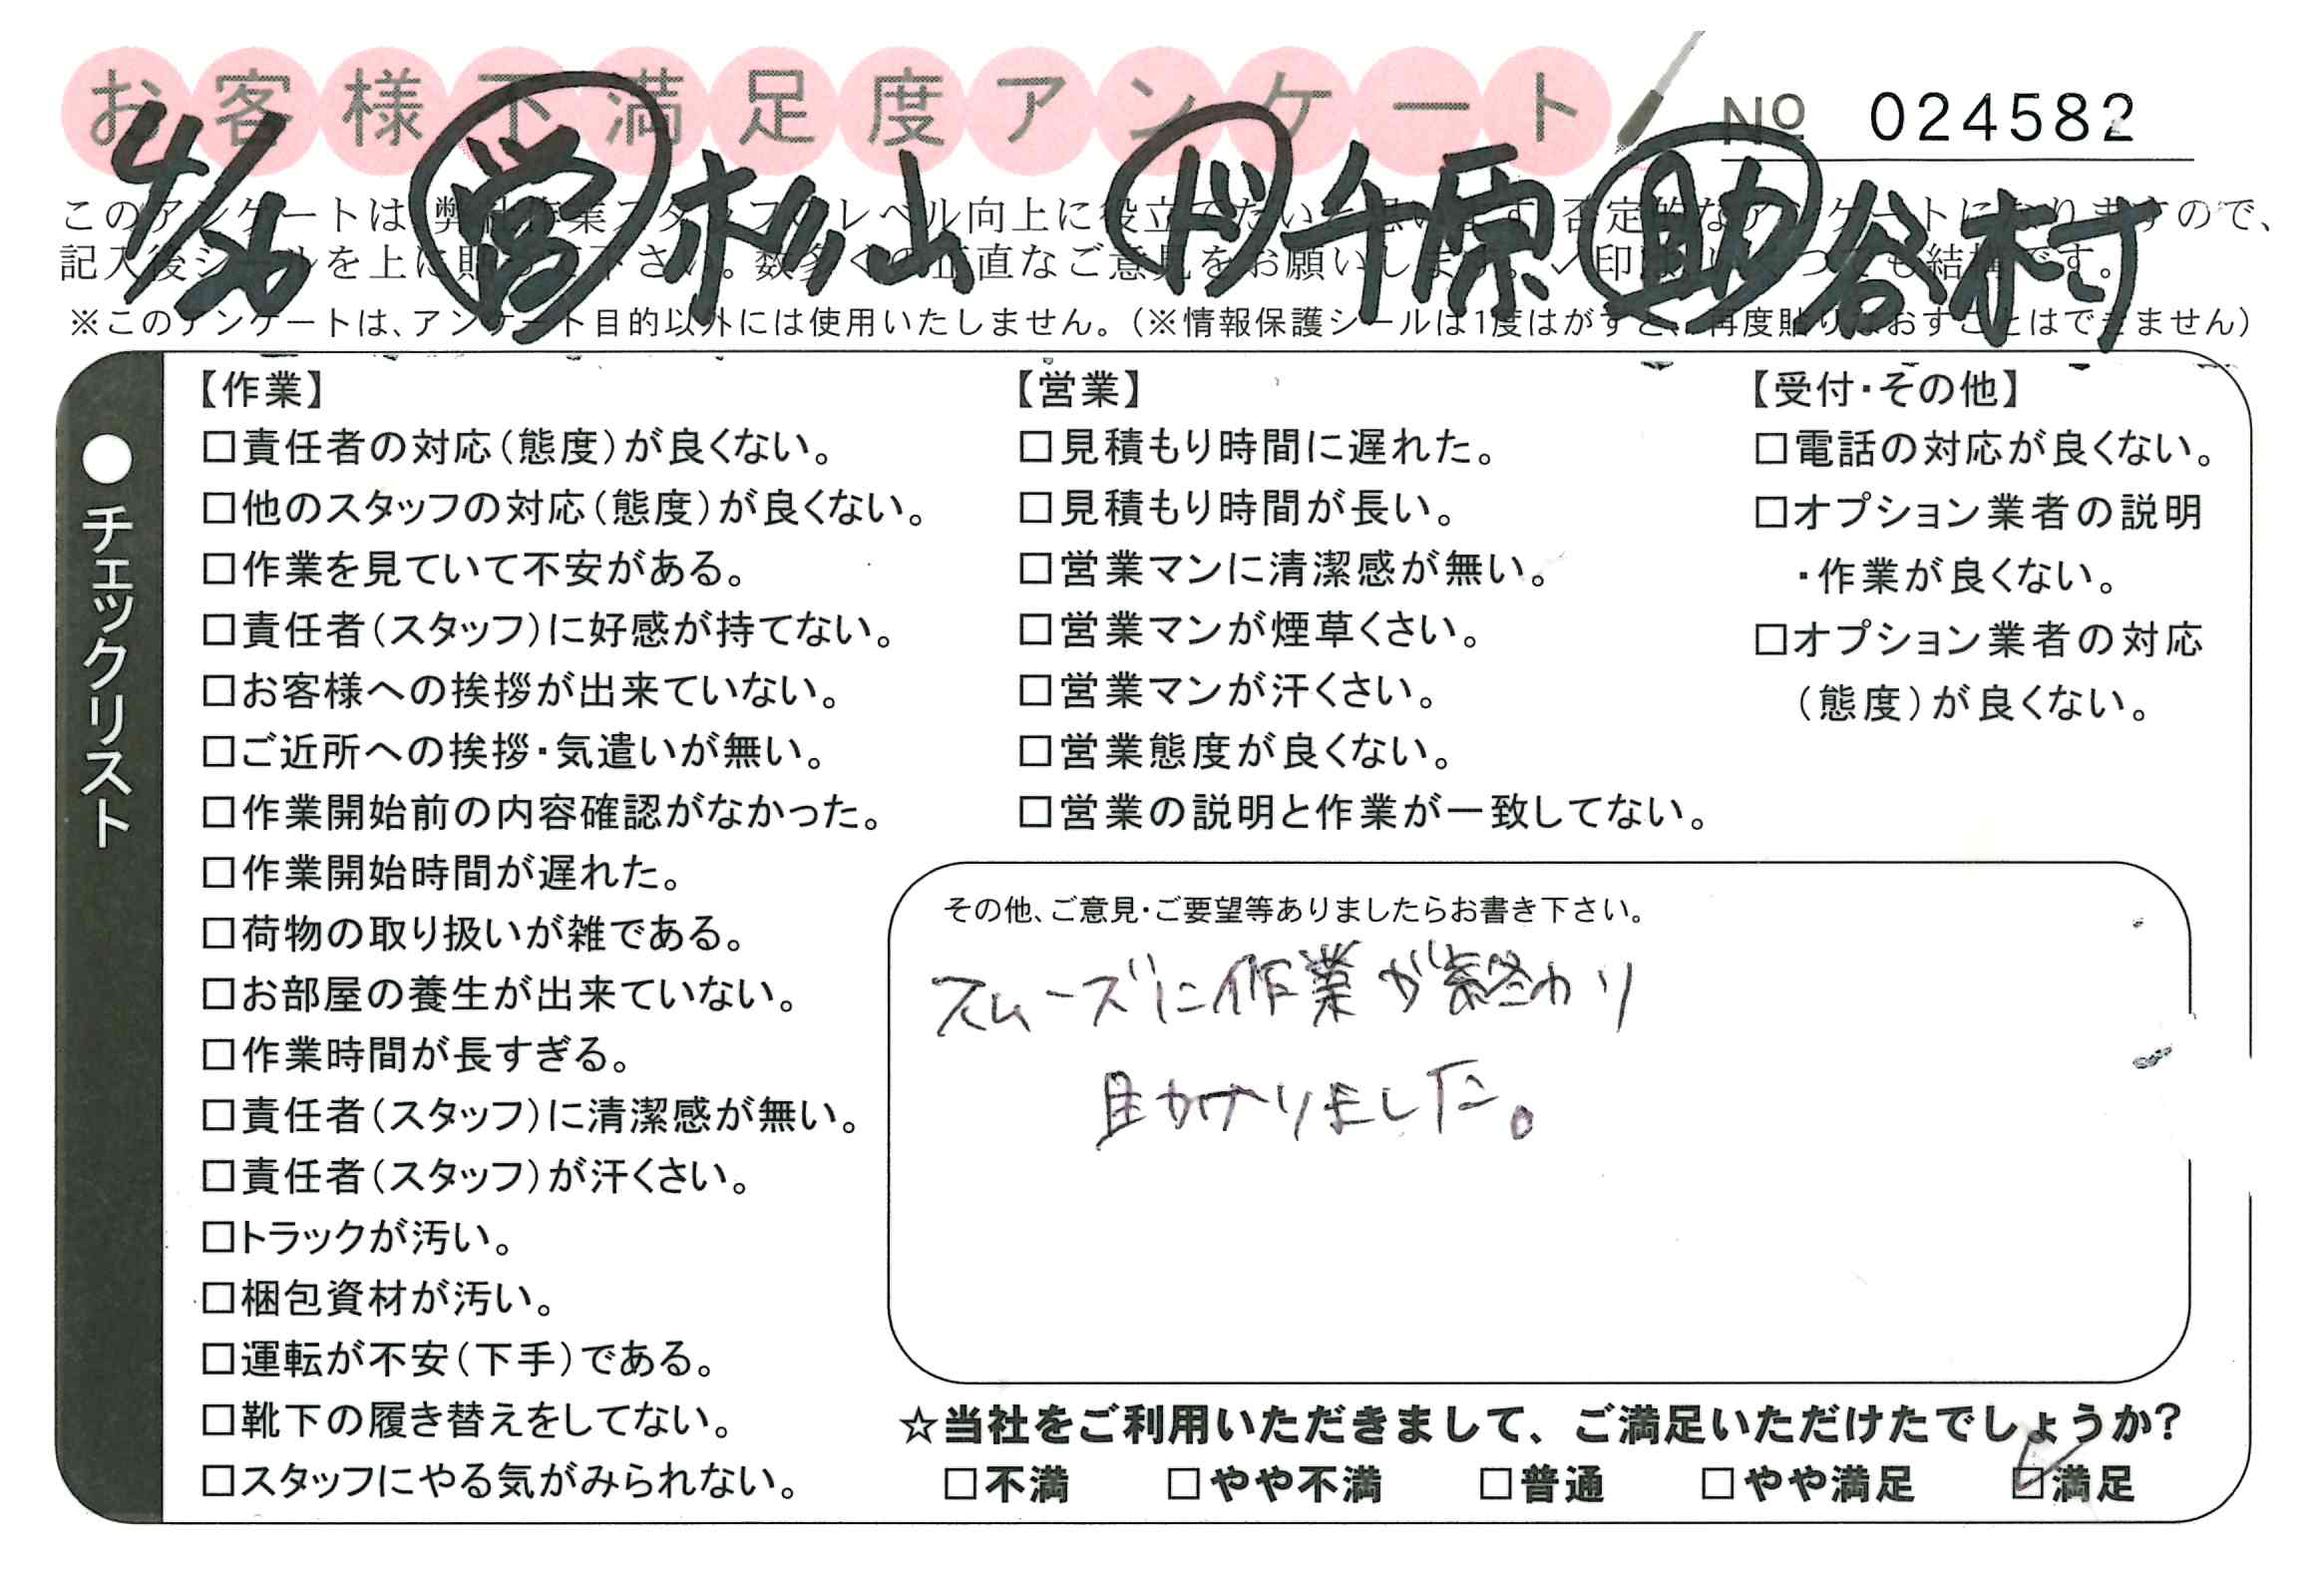 お客様不満足度アンケート
№ 024582
4/26 営 杉山 ド 千原 助 谷村
このアンケートは、弊社作業スタッフのレベル向上に役立てたいと思います。否定的なアンケートになりますので、
記入後シールを上に貼って下さい。数多くの正直なご意見をお願いします。✓印だけつけても結構です。
※このアンケートは、アンケート目的以外には使用いたしません。（※情報保護シールは1度はがすと、再度貼りなおすことはできません）
●チェックリスト
【作業】
□責任者の対応（態度）が良くない。
□他のスタッフの対応（態度）が良くない。
□作業を見ていて不安がある。
□責任者（スタッフ）に好感が持てない。
□お客様への挨拶が出来ていない。
□ご近所への挨拶・気遣いが無い。
□作業開始前の内容確認がなかった。
□作業開始時間が遅れた。
□荷物の取り扱いが雑である。
□お部屋の養生が出来ていない。
□作業時間が長すぎる。
□責任者（スタッフ）に清潔感が無い。
□責任者（スタッフ）が汗くさい。
□トラックが汚い。
□梱包資材が汚い。
□運転が不安（下手）である。
□靴下の履き替えをしてない。
□スタッフにやる気がみられない。
【営業】
□見積もり時間に遅れた。
□見積もり時間が長い。
□営業マンに清潔感が無い。
□営業マンが煙草くさい。
□営業マンが汗くさい。
□営業態度が良くない。
□営業の説明と作業が一致してない。
【受付・その他】
□電話の対応が良くない。
□オプション業者の説明
・作業が良くない。
□オプション業者の対応
（態度）が良くない。
その他、ご意見・ご要望等ありましたらお書き下さい。
スムーズに作業が終わり
助かりました。
☆当社をご利用いただきまして、ご満足いただけたでしょうか？
□不満 □やや不満 □普通 □やや満足 ☑満足